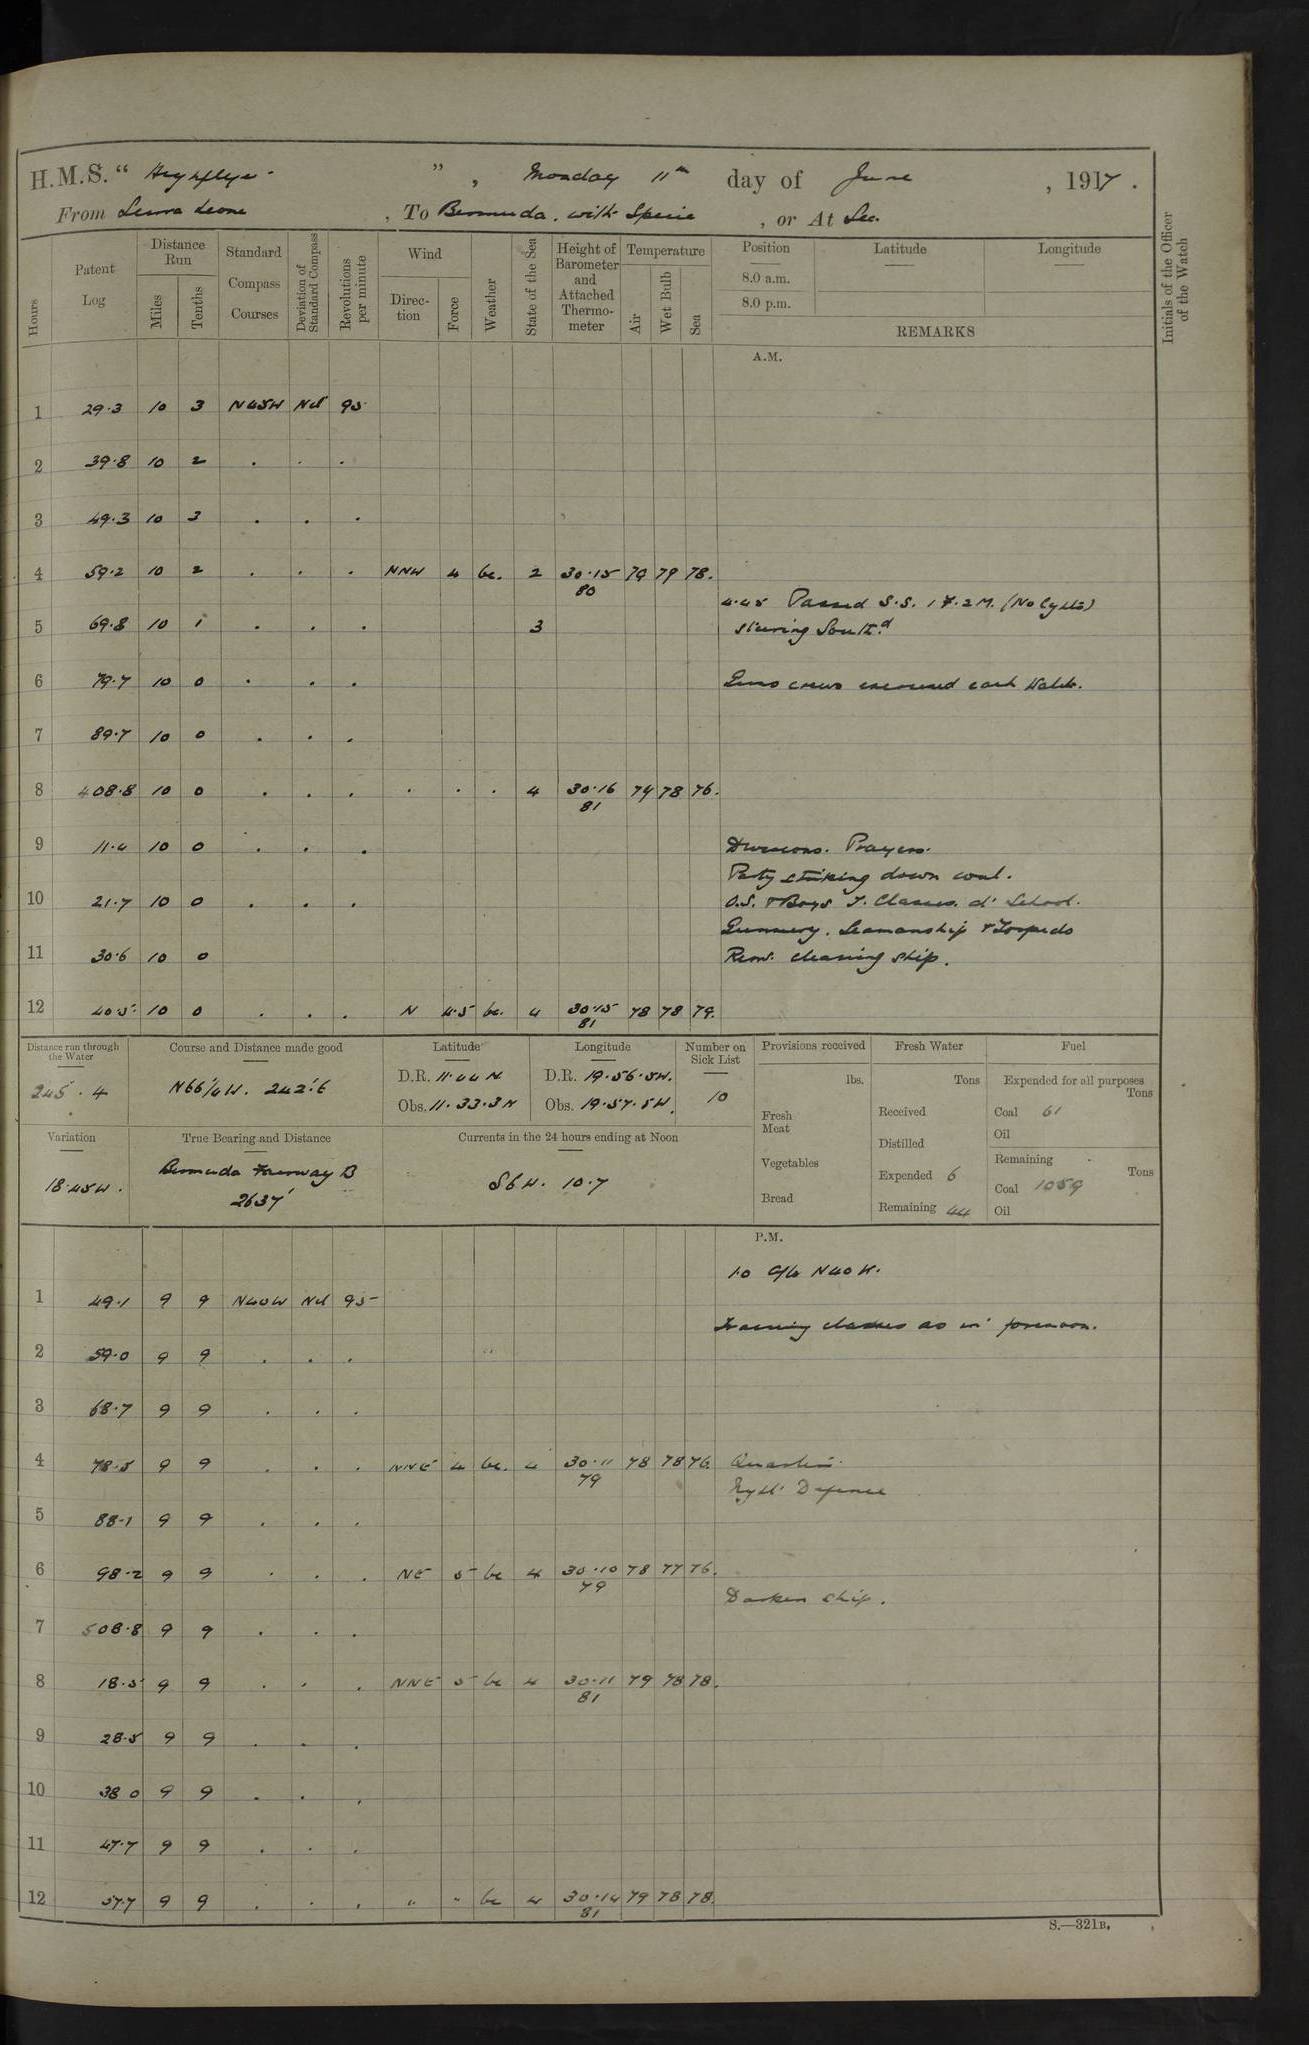 H.M.S. "Highflyer", Monday 11th day of June, 1917.
From Sierra Leone, To Bermuda. with Specie, or At Sea.
Hours
Patent Log
Distance Run
Miles
Tenths
Standard Compass Courses
Deviation of Standard Compass
Revolutions per minute
Wind
Direction
Force
Weather
State of the Sea
Height of Barometer and Attached Thermometer
Temperature
Air
Wet Bulb
Sea
Position
Latitude
Longitude
8.0 a.m.
8.0 p.m.
REMARKS
Initials of the Officer of the Watch
A.M.
1 29.3 10 3 N45W Nil 95
2 39.8 10 2 . . .
3 49.3 10 3 . . .
4 59.2 10 2 . . . NNW 4 bc. 2 30.15 79 79 78.
80
4.45 Passed S.S. (No lights)
5 69.8 10 1 . . . 3 steering South.d
6 79.7 10 0 . . . Guns crews exercised each Watch.
7 89.7 10 0 . . .
8 408.8 10 0 . . . . . . 4 30.16 79 78 76.
81
9 11.4 10 0 . . . Divisions. Prayers.
Party striking down coal.
10 21.7 10 0 . . . O.S. & Boys T. Classes. at School.
Gunnery. Seamanship & Torpedo
11 30.6 10 0 Remr. cleaning ship.
12 40.5 10 0 . . . N 4.5 bc. 4 30.15 78 78 79.
81
Distance run through the Water
245.4
Course and Distance made good
N66¼W. 242'.6
Latitude
D.R. 11.44 N
Obs. 11.33.3 N
Longitude
D.R. 19.56.5W.
Obs. 19.57.5W.
Number on Sick List
10
Provisions received
lbs.
Fresh Meat
Vegetables
Bread
Fresh Water
Tons
Received
Distilled
Expended 6
Remaining 44
Fuel
Expended for all purposes
Tons
Coal 61
Oil
Remaining
Tons
Coal 1059
Oil
Variation
18.45W.
True Bearing and Distance
Bermuda Fairway B
2637'
Currents in the 24 hours ending at Noon
S6W. 10.7
P.M.
1.0 C/c N40W.
1 49.1 9 9 N40W Nil 95
Training classes as in forenoon.
2 59.0 9 9 . . .
3 68.7 9 9 . . .
4 78.5 9 9 . . . NNE 4 bc. 4 30.11 78 78 76. Quarters.
79
Night Defence
5 88.1 9 9 . . .
6 98.2 9 9 . . . NE 5 bc 4 30.10 78 77 76.
79
Darken ship.
7 508.8 9 9 . . .
8 18.5 9 9 . . . NNE 5 bc 4 30.11 79 78 78.
81
9 28.5 9 9 . . .
10 38 0 9 9 . . .
11 47.7 9 9 . . .
12 57.7 9 9 . . . " " bc 4 30.14 79 78 78.
81
S.—321B.